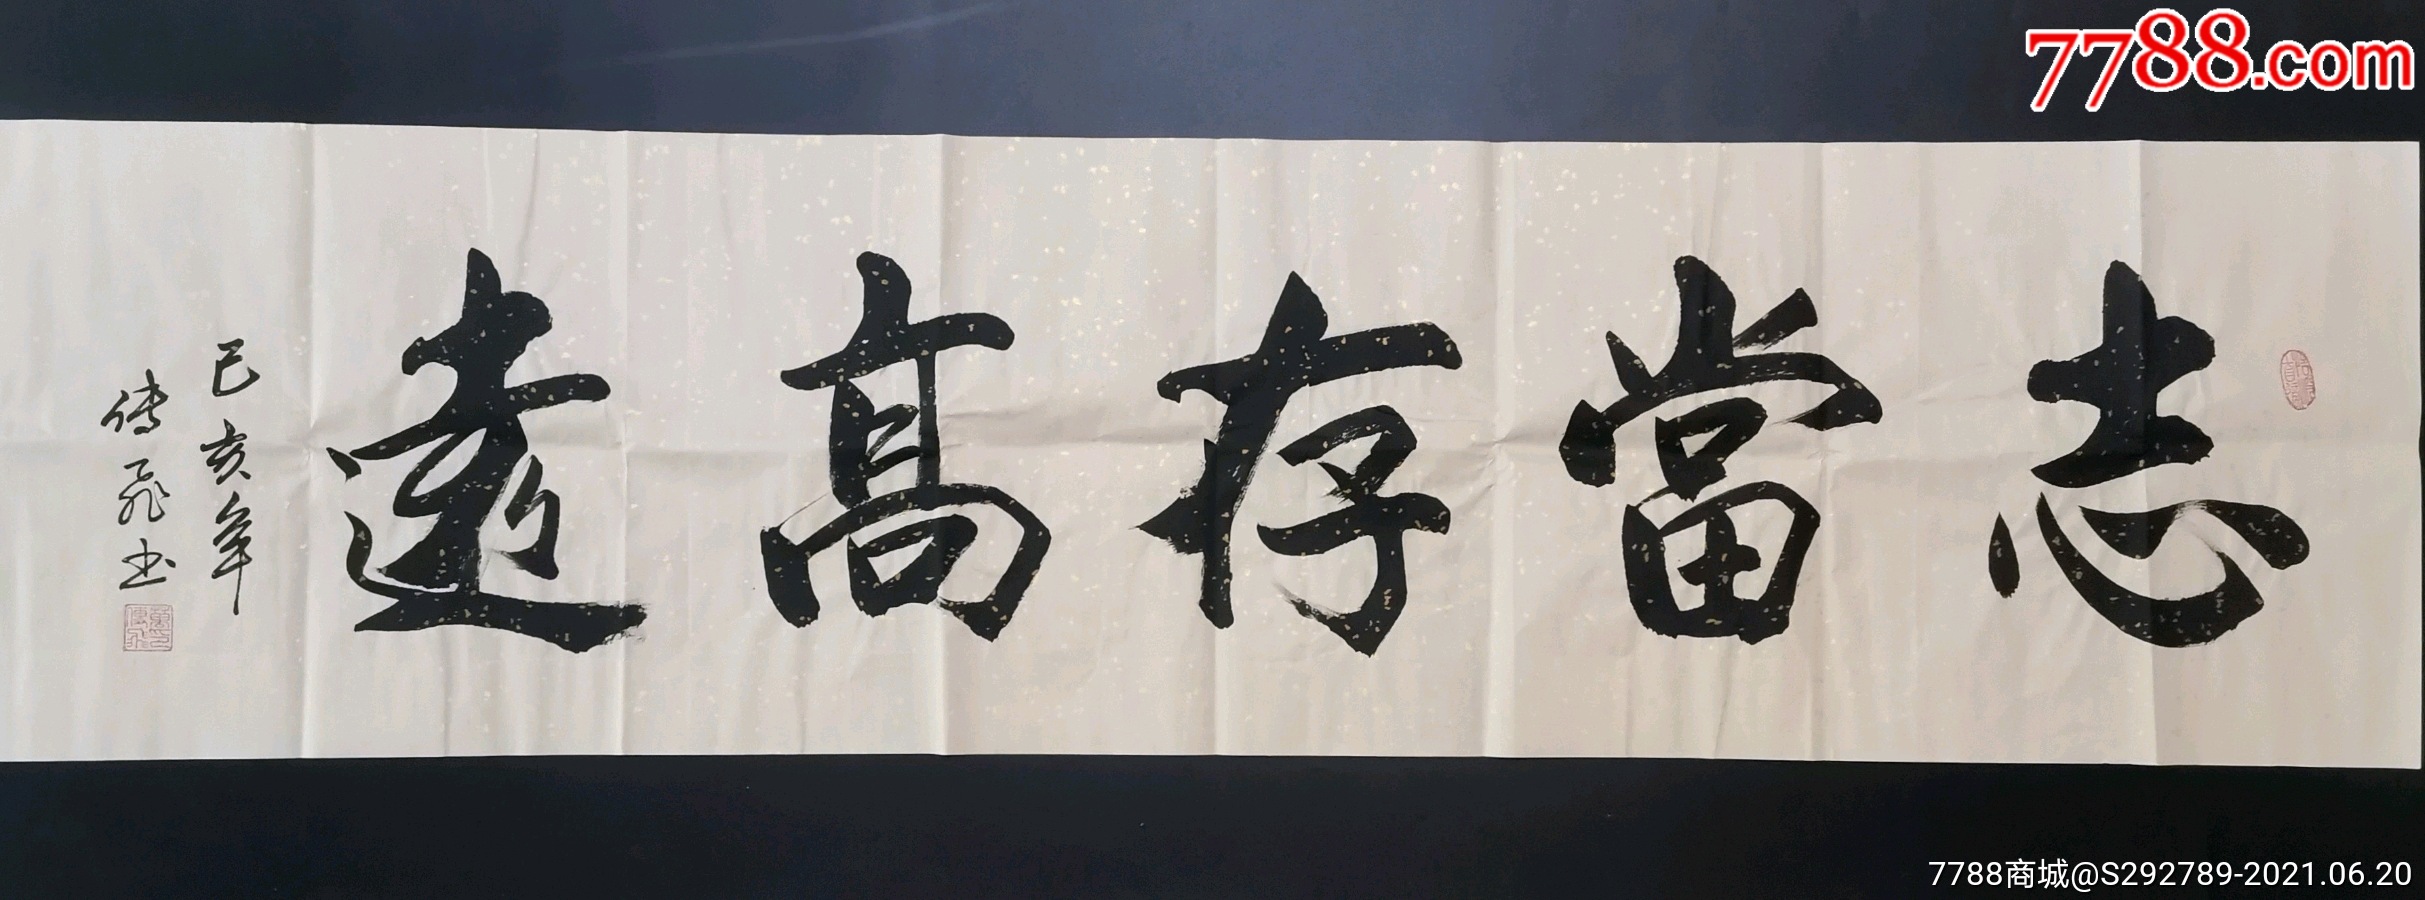 7788.com
志當存高遠
己亥年
傳飛书
7788商城@S292789-2021.06.20